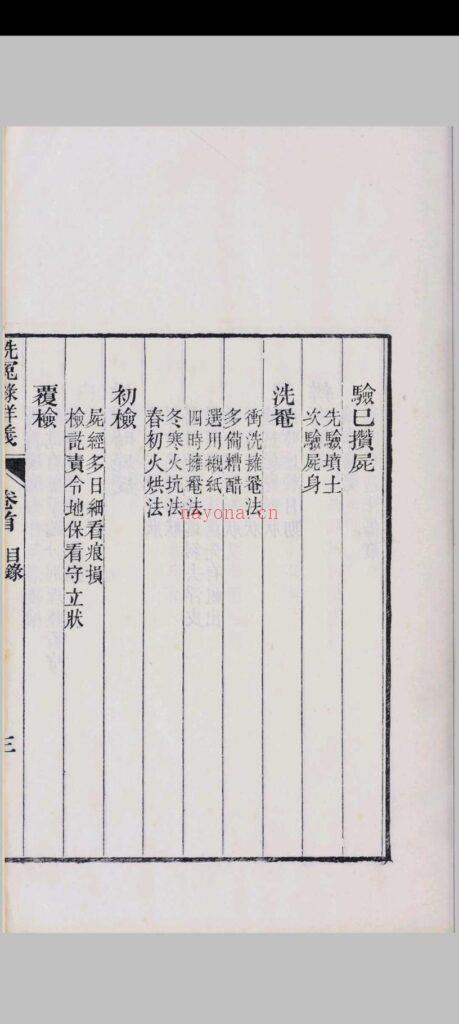 驗已攢屍
先驗墳土
次驗屍身
洗罨
衝洗擁罨法
多備糟醋
選用襯紙
四時擁罨法
冬寒火坑法
春初火烘法
初檢
屍經多日細看痕損
檢訖責令地保看守立狀
覆檢
洗冤錄詳義
卷首 目錄
三
nayona.cn